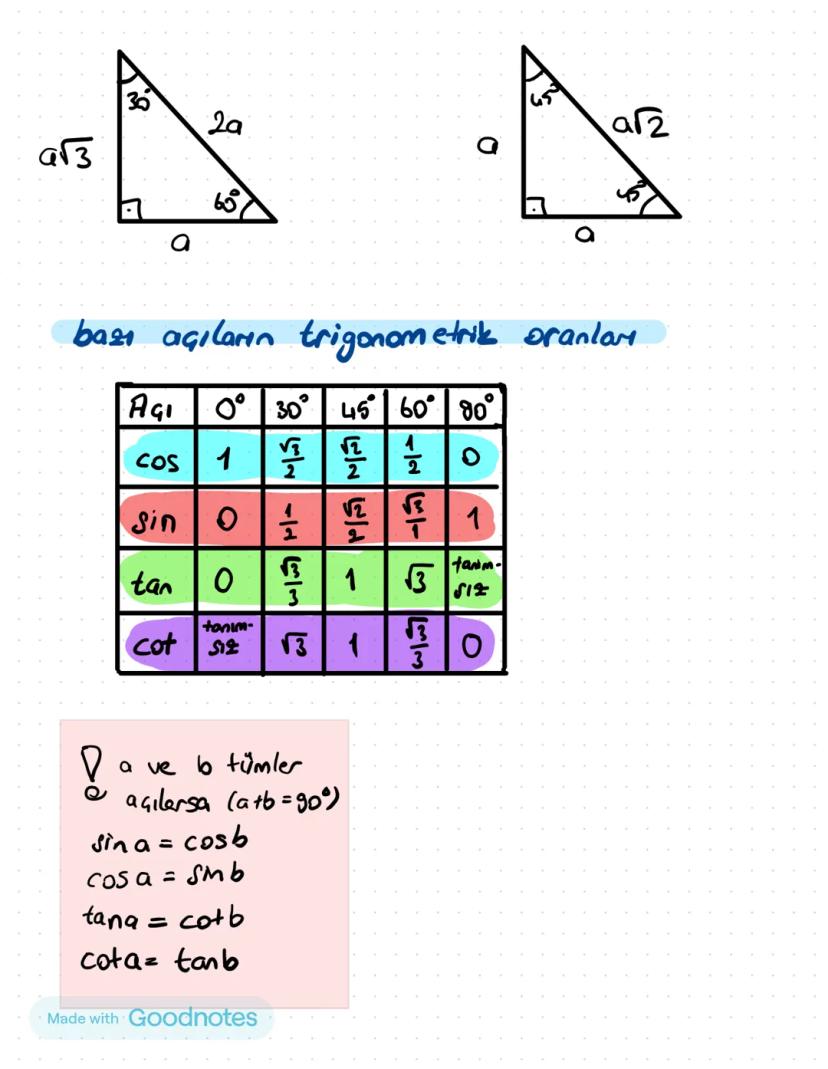 30°
2a
a√3
60°
a
45°
a√2
a
45°
a
bazı açıların trigonometrik oranları
Açı 0° 30° 45° 60° 90°
cos 1 √3/2 √2/2 1/2 0
sin 0 1/2 √2/2 √3/1 1
tan 0 √3/3 1 √3 tanım-sız
cot tanım-sız √3 1 √3/3 0
! a ve b tümler
açılarsa (a+b=90°)
sin a = cosb
cos a = sin b
tana = cotb
cota= tanb
Made with Goodnotes